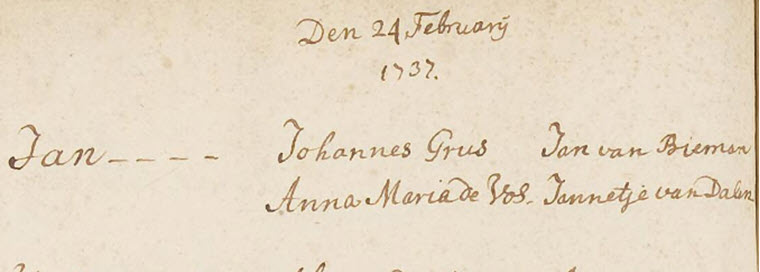 Den 24 Februarij
1737.
Jan---- Johannes Grus Jan van Bieman
Anna Maria de Vos. Jannetje van Dalen